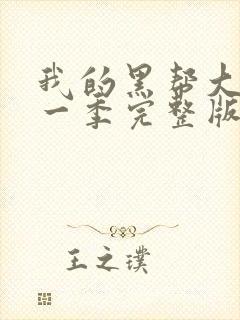 我的黑帮大
一季完整版
王之璞